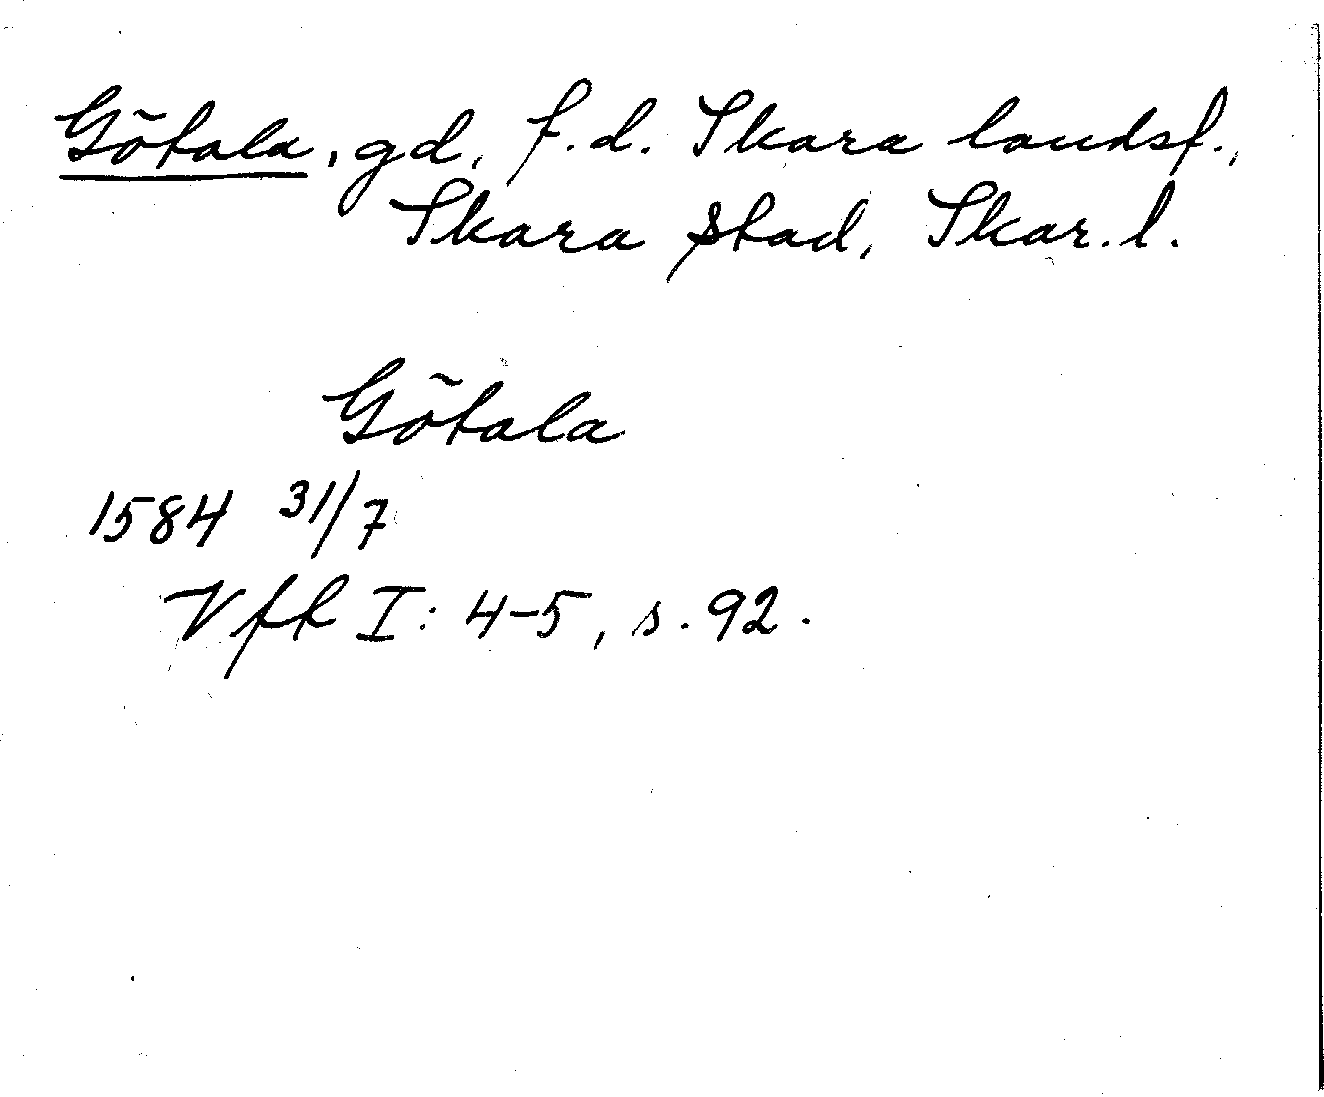 Götala, gd, f.d. Skara landsf.,
Skara stad, Skar.l.
Götala
1584 31/7
Vft I: 4-5, s. 92.